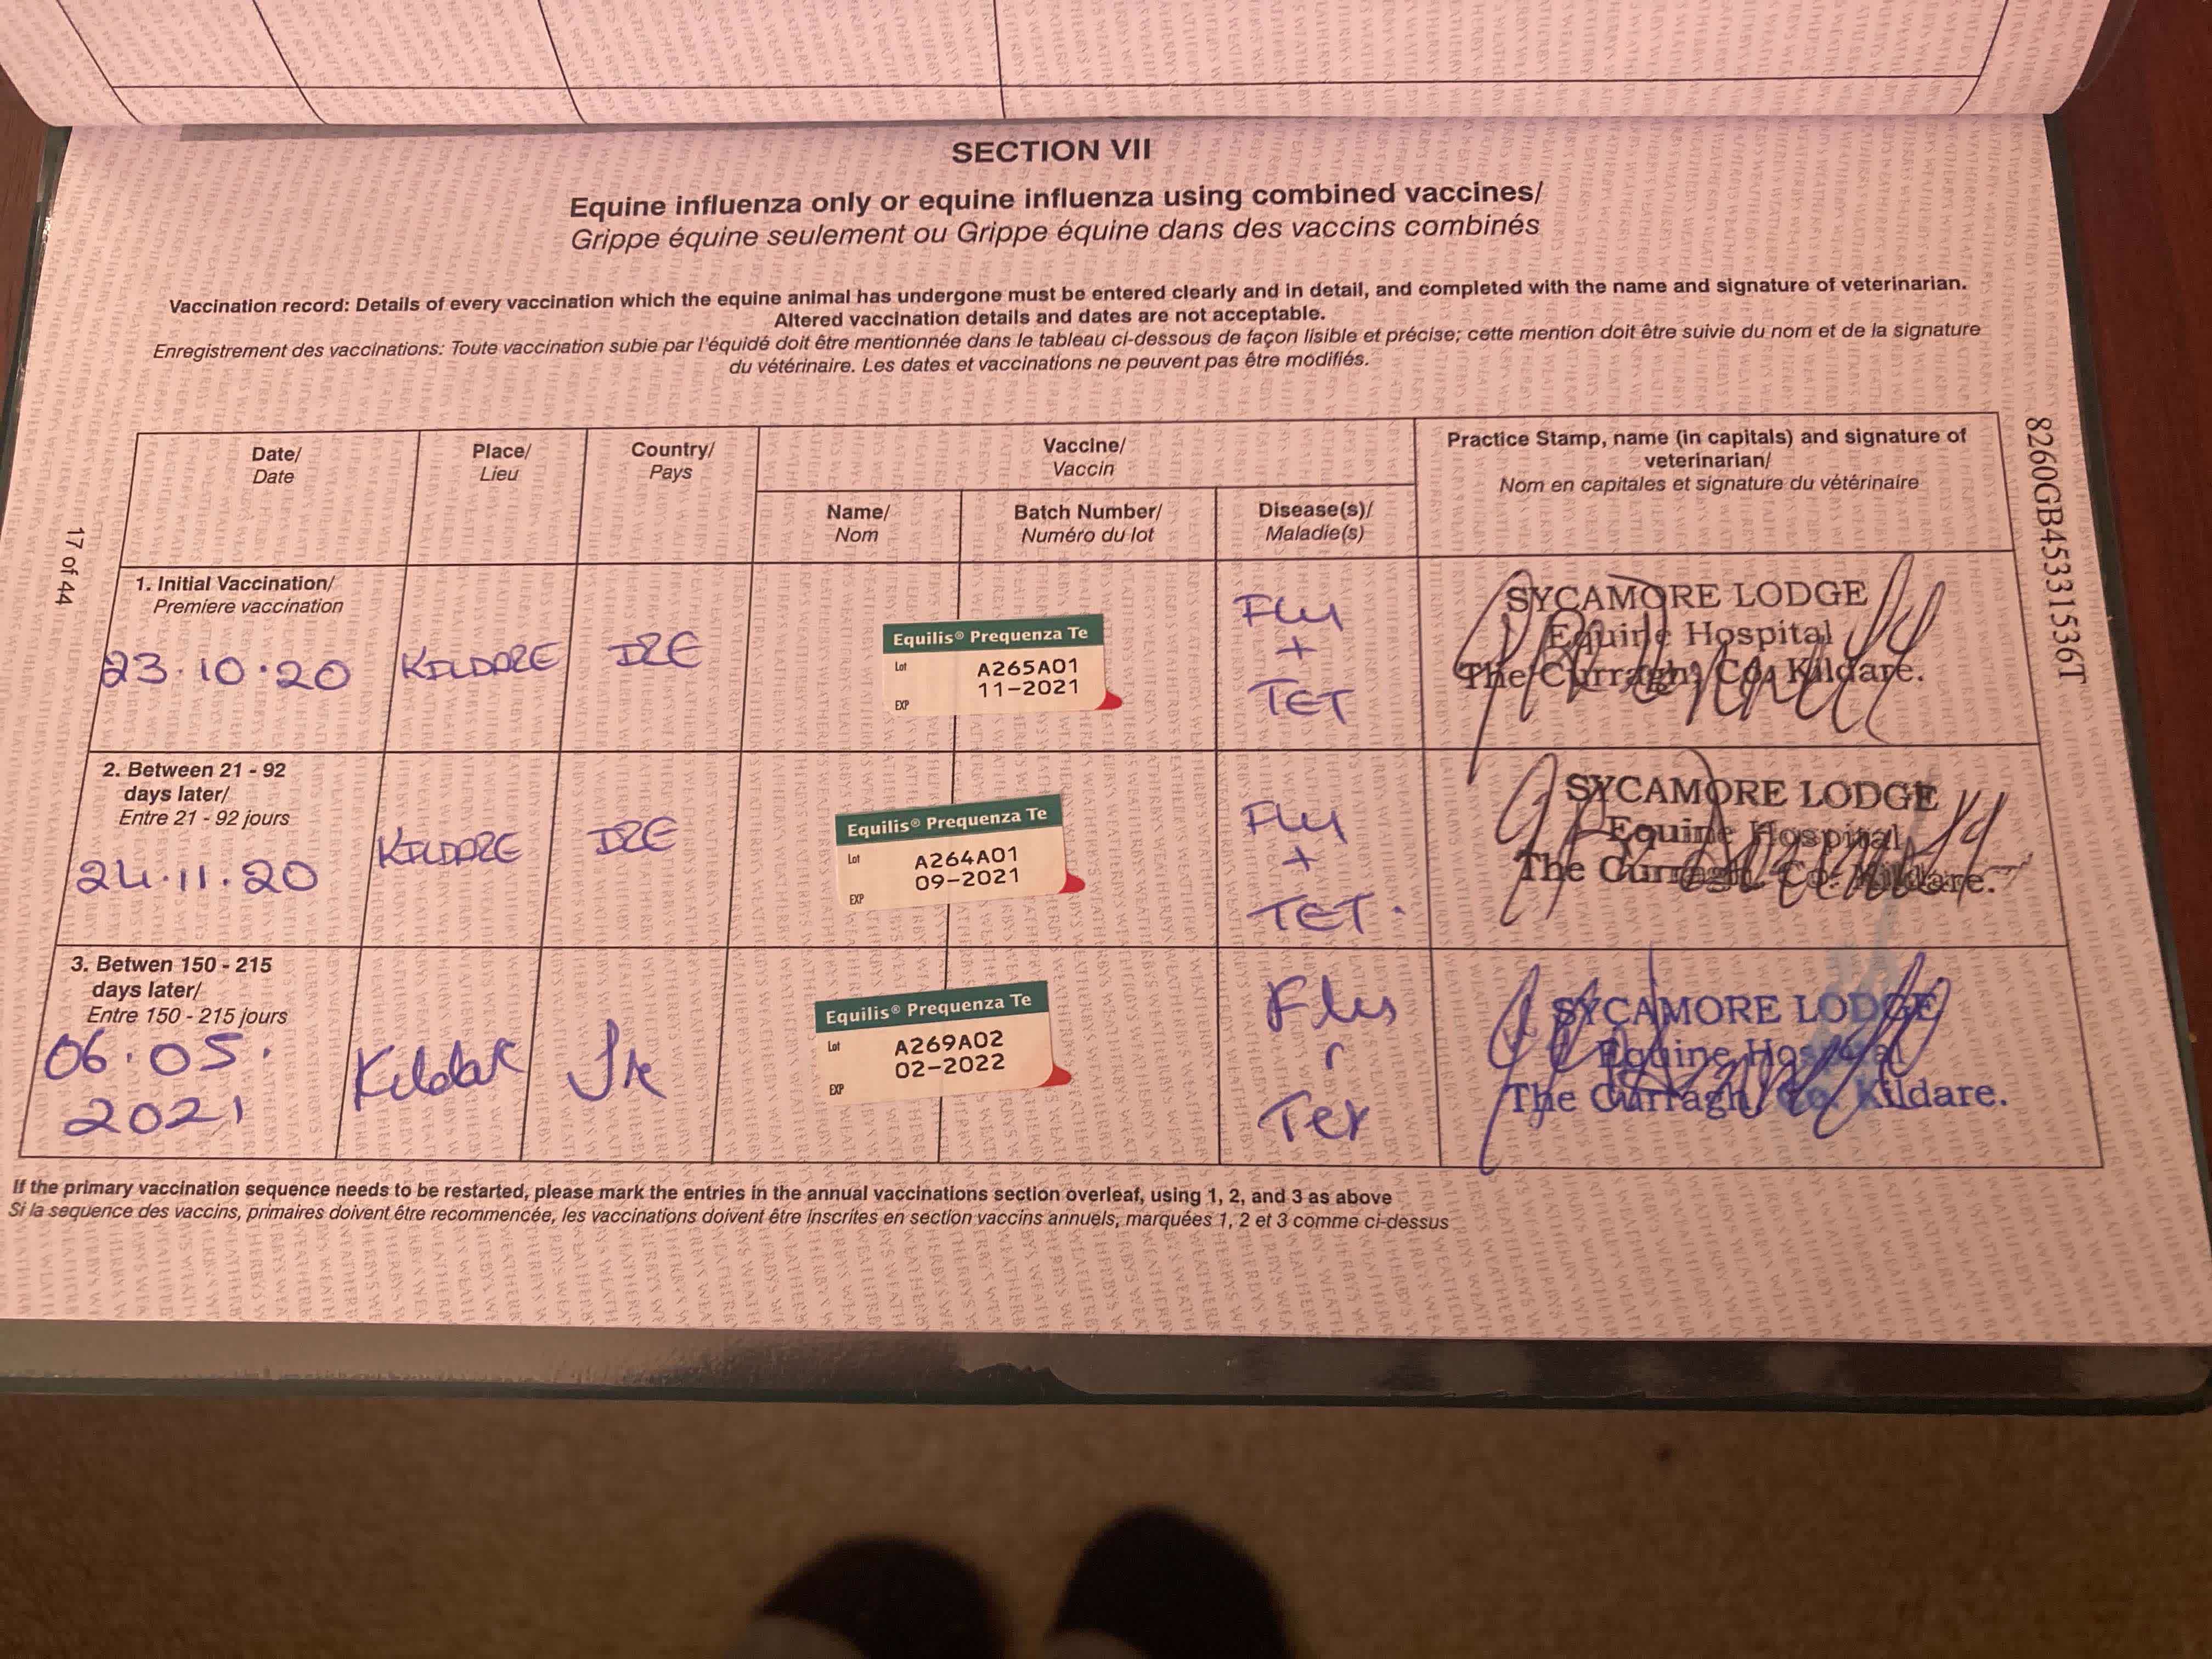 SECTION VII
Equine influenza only or equine influenza using combined vaccines/
Grippe équine seulement ou Grippe équine dans des vaccins combinés
Vaccination record: Details of every vaccination which the equine animal has undergone must be entered clearly and in detail, and completed with the name and signature of veterinarian.
Altered vaccination details and dates are not acceptable.
Enregistrement des vaccinations: Toute vaccination subie par l'équidé doit être mentionnée dans le tableau ci-dessous de façon lisible et précise; cette mention doit être suivie du nom et de la signature
du vétérinaire. Les dates et vaccinations ne peuvent pas être modifiés.
Date/
Date
Place/
Lieu
Country/
Pays
Vaccine/
Vaccin
Name/
Nom
Batch Number/
Numéro du lot
Disease(s)/
Maladie(s)
Practice Stamp, name (in capitals) and signature of
veterinarian/
Nom en capitales et signature du vétérinaire
1. Initial Vaccination/
Premiere vaccination
23.10.20
KILDARE
IRE
Equilis® Prequenza Te
Lot A265A01
11-2021
EXP
Flu
+
TET
SYCAMORE LODGE
Equine Hospital
The Curragh, Co. Kildare.
2. Between 21 - 92
days later/
Entre 21 - 92 jours
24.11.20
KILDARE
IRE
Equilis® Prequenza Te
Lot A264A01
09-2021
EXP
Flu
+
TET.
SYCAMORE LODGE
Equine Hospital
The Curragh, Co. Kildare.
3. Betwen 150 - 215
days later/
Entre 150 - 215 jours
06.05.
2021
Kildare
Ire
Equilis® Prequenza Te
Lot A269A02
02-2022
EXP
Flu
Tet
SYCAMORE LODGE
Equine Hospital
The Curragh, Co. Kildare.
If the primary vaccination sequence needs to be restarted, please mark the entries in the annual vaccinations section overleaf, using 1, 2, and 3 as above
Si la sequence des vaccins, primaires doivent être recommencée, les vaccinations doivent être inscrites en section vaccins annuels, marquées 1, 2 et 3 comme ci-dessus
17 of 44
8260GB45331536T